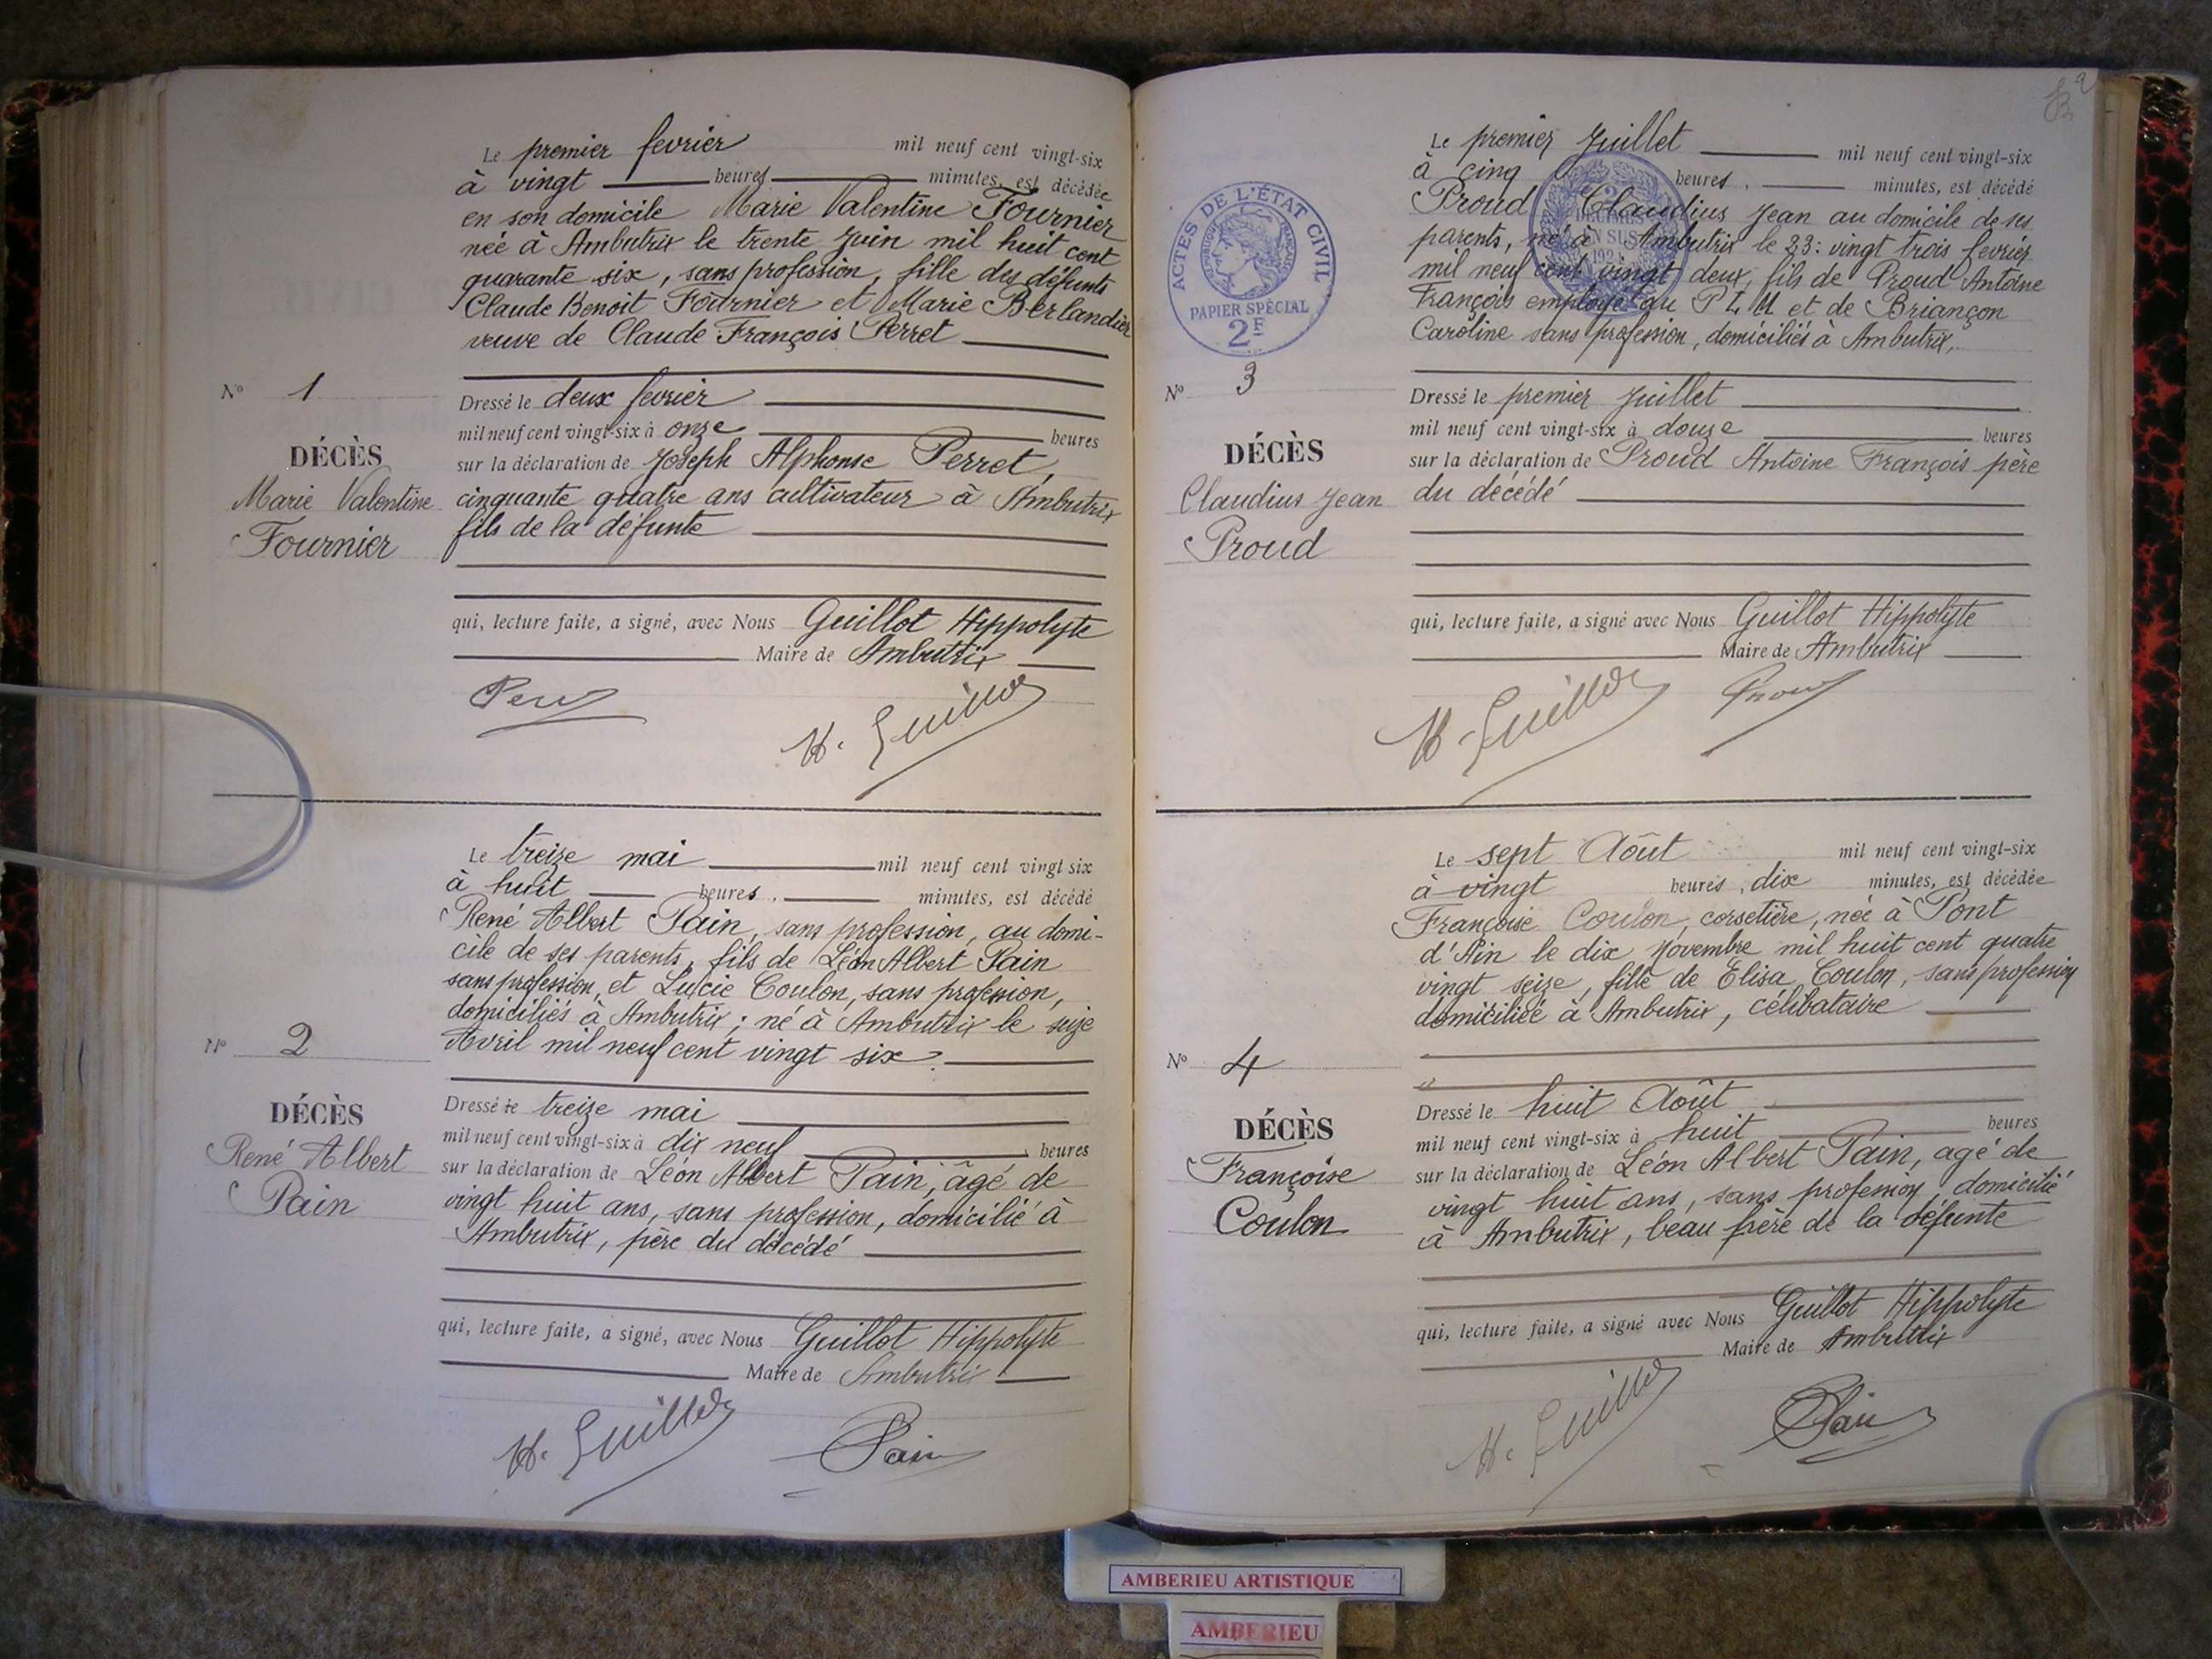 Le premier fevrier mil neuf cent vingt-six
à vingt heures minutes, est décédée
en son domicile Marie Valentine Fournier
née à Ambutrix le trente Juin mil huit cent
quarante six, sans profession, fille des défunts
Claude Benoit Fournier et Marie Berlandier
veuve de Claude François Perret
N° 1
Dressé le deux fevrier
mil neuf cent vingt-six à onze heures
DÉCÈS
sur la déclaration de Joseph Alphonse Perret,
Marie Valentine
cinquante quatre ans cultivateur à Ambutrix
Fournier
fils de la défunte
qui, lecture faite, a signé, avec Nous Guillot Hippolyte
Maire de Ambutrix
H. Guillot
Le treize mai mil neuf cent vingt six
à huit heures, minutes, est décédé
René Albert Pain, sans profession, au domi-
cile de ses parents, fils de Léon Albert Pain
sans profession, et Lucie Coulon, sans profession,
domiciliés à Ambutrix ; né à Ambutrix le seize
Avril mil neuf cent vingt six.
N° 2
DÉCÈS
René Albert
Pain
Dressé le treize mai
mil neuf cent vingt-six à dix neuf heures
sur la déclaration de Léon Albert Pain, âgé de
vingt huit ans, sans profession, domicilié à
Ambutrix, père du décédé
qui, lecture faite, a signé, avec Nous Guillot Hippolyte
Maire de Ambutrix
H. Guillot
Pain
2
ACTES DE L'ÉTAT CIVIL
RÉPUBLIQUE FRANÇAISE
PAPIER SPÉCIAL
2F
2
DÉCIMES
EN SUS
Le premier Juillet mil neuf cent vingt-six
à cinq heures, minutes, est décédé
Proud Claudius Jean au domicile de ses
parents, né à Ambutrix le 23: vingt trois fevrier
mil neuf cent vingt deux, fils de Proud Antoine
François employé au P L M et de Briançon
Caroline sans profession, domiciliés à Ambutrix,
N° 3
DÉCÈS
Claudius Jean
Proud
Dressé le premier Juillet
mil neuf cent vingt-six à douze heures
sur la déclaration de Proud Antoine François père
du décédé
qui, lecture faite, a signé avec Nous Guillot Hippolyte
Maire de Ambutrix
H. Guillot
Proud
Le sept Août mil neuf cent vingt-six
à vingt heures, dix minutes, est décédée
Françoise Coulon, corsetière, née à Pont
d'Ain le dix Novembre mil huit cent quatre
vingt seize, fille de Elisa Coulon, sans profession
domiciliée à Ambutrix, célibataire
N° 4
DÉCÈS
Françoise
Coulon
Dressé le huit Août
mil neuf cent vingt-six à huit heures
sur la déclaration de Léon Albert Pain, agé de
vingt huit ans, sans profession, domicilié
à Ambutrix, beau frère de la défunte
qui, lecture faite, a signé avec Nous Guillot Hippolyte
Maire de Ambutrix
H. Guillot
Pain
AMBERIEU ARTISTIQUE
AMBERIEU